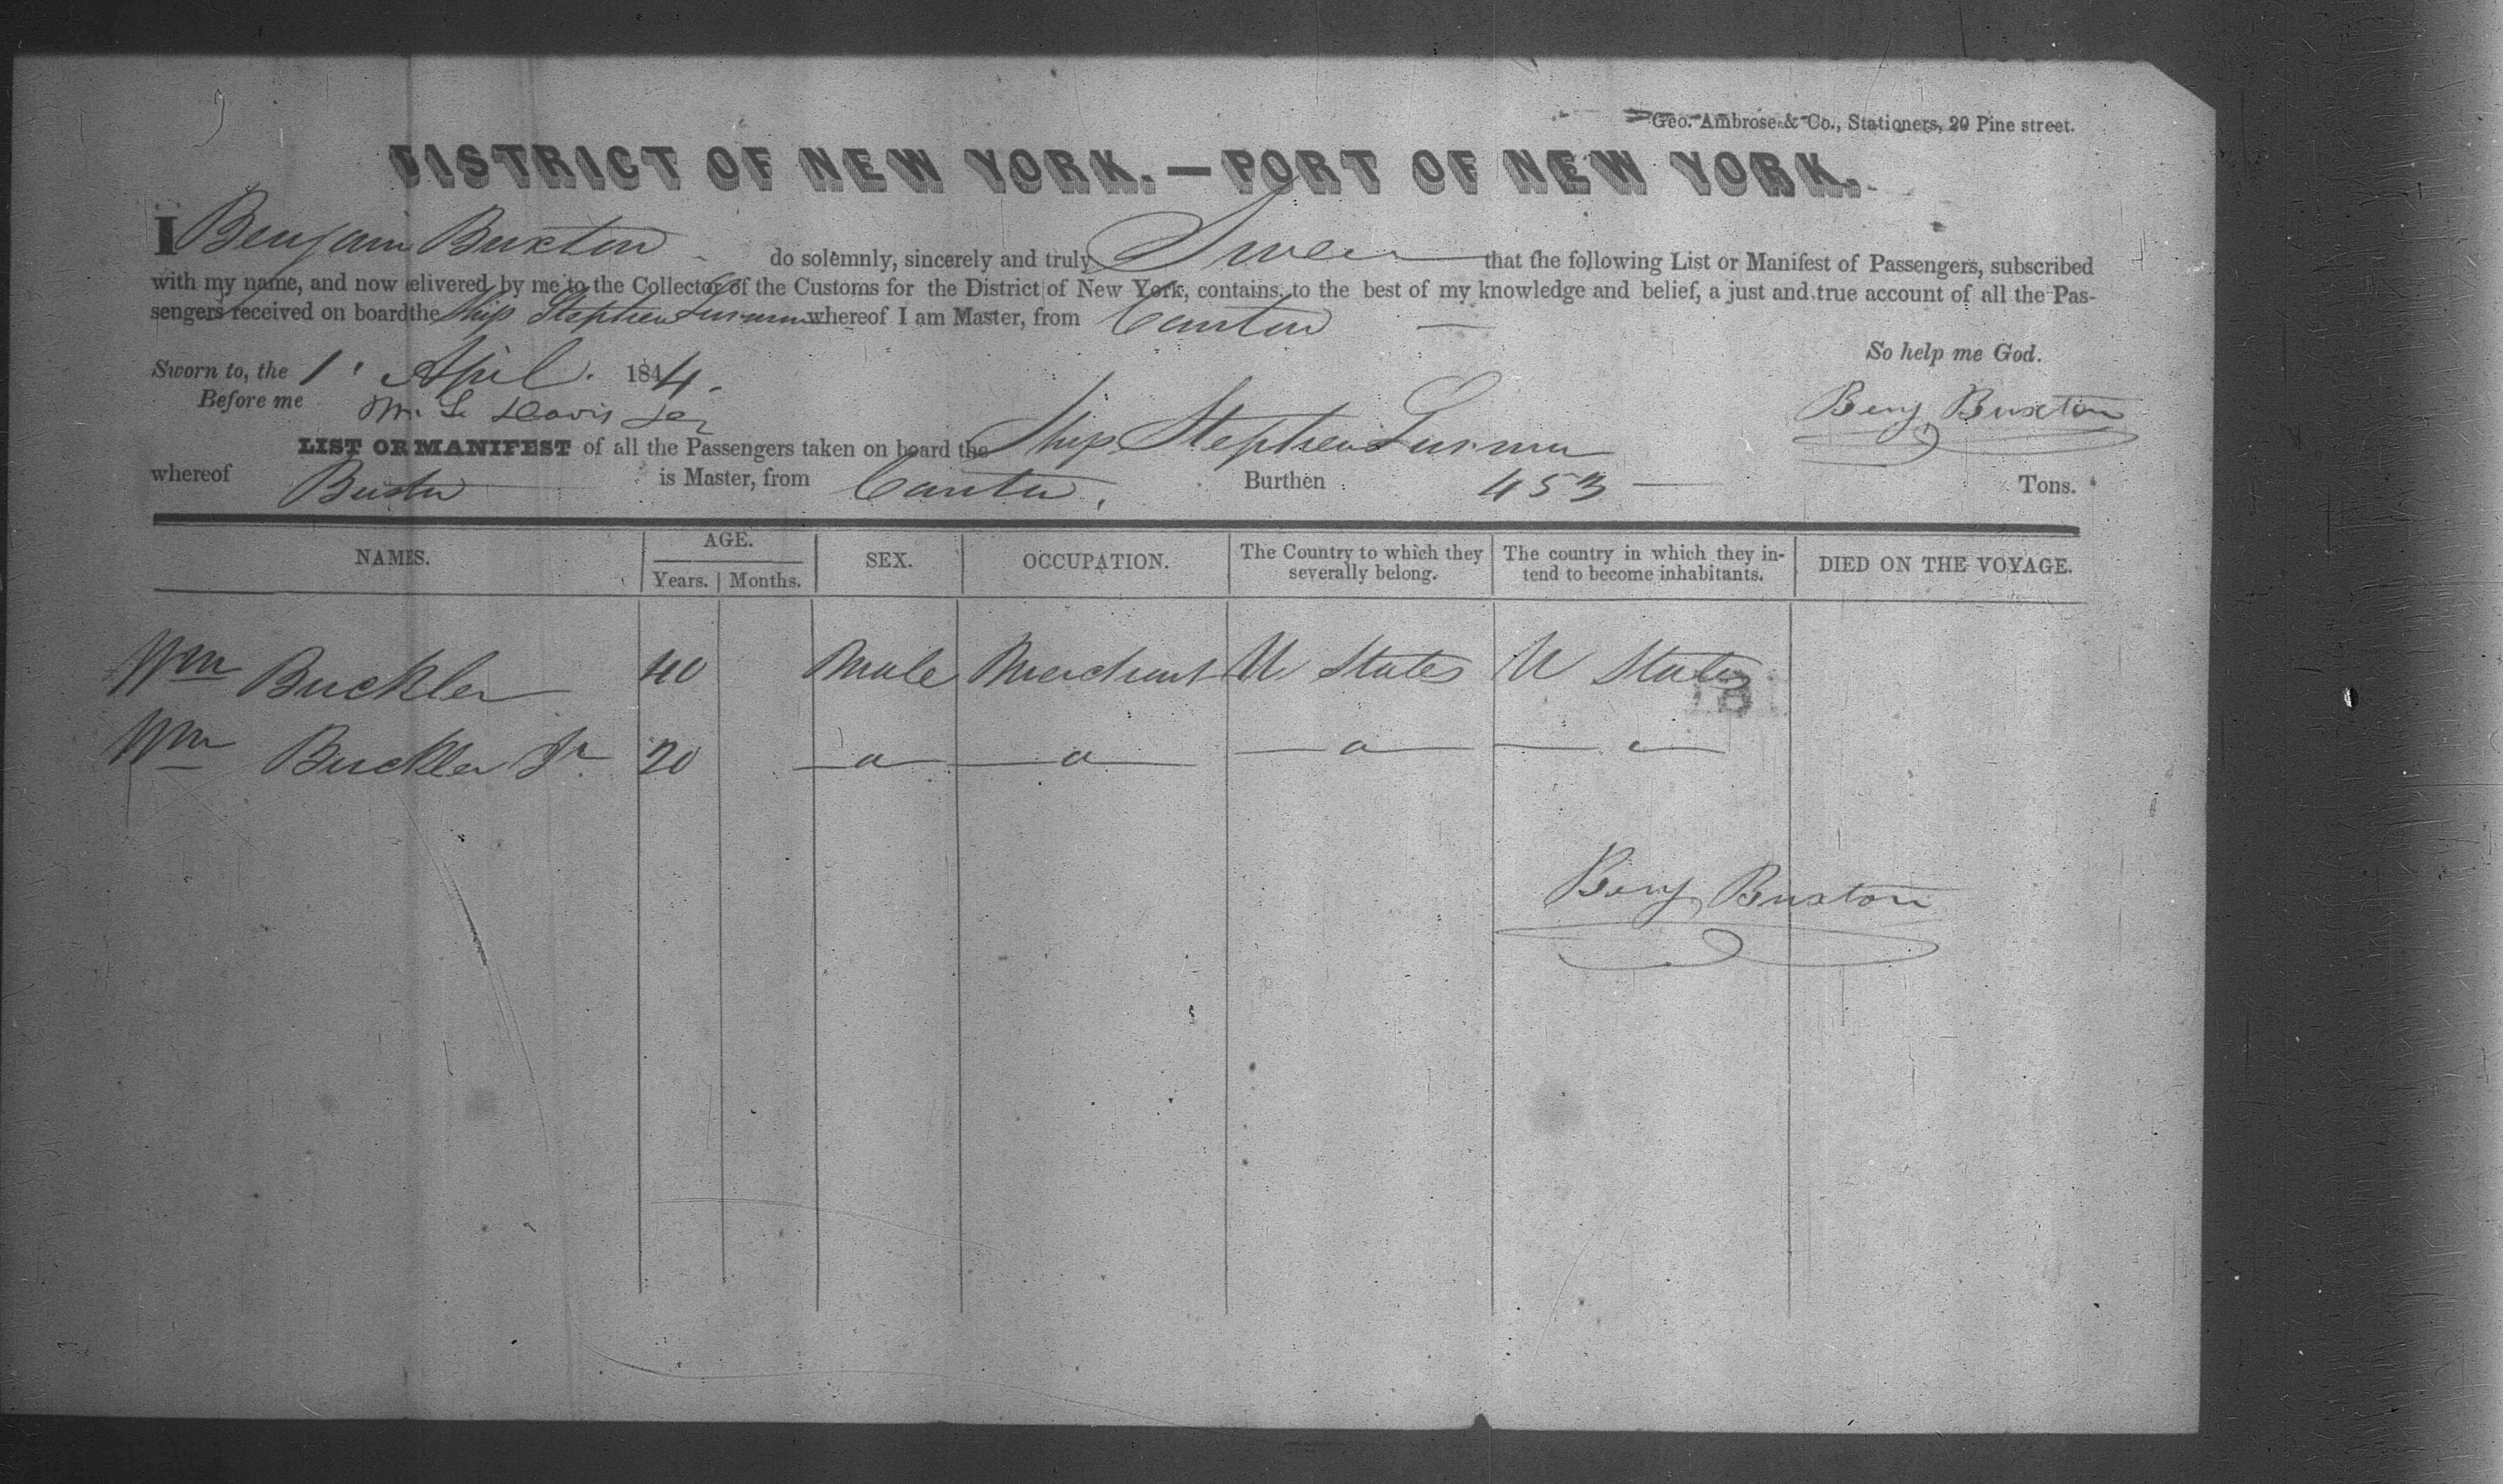 Geo. Ambrose & Co., Stationers, 20 Pine street.
DISTRICT OF NEW YORK.—PORT OF NEW YORK.
I Benjamin Buxton do solemnly, sincerely and truly Swear that the following List or Manifest of Passengers, subscribed
with my name, and now delivered by me to the Collector of the Customs for the District of New York, contains, to the best of my knowledge and belief, a just and true account of all the Pas-
sengers received on board the Ship Stephen Lurman whereof I am Master, from Canton
So help me God.
Sworn to, the 1 April. 1844.
Before me M. L. Davis
Benj Buxton
LIST OR MANIFEST of all the Passengers taken on board the Ship Stephen Lurman
whereof Buxton is Master, from Canton, Burthen 453 Tons.
NAMES. AGE. Years. Months. SEX. OCCUPATION. The Country to which they severally belong. The country in which they intend to become inhabitants. DIED ON THE VOYAGE.
Wm Buckler 40 Male Merchant U States U States
Wm Buckler Jr 20 —a— —a— —a— —a—
Benj Buxton